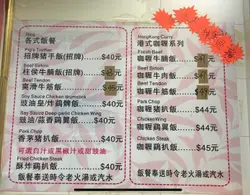 Rice
各式飯餐
Pig's Trotter
招牌猪手飯(招牌)......$40元
Beef Sirloin
柱侯牛腩飯(招牌)
Beef Tendon
爽滑牛筋飯
豉油皇/炸雞髀飯......$40元
Soy Sauce Deep Chicken Wing
豉油/蒸香雞翼飯......$40元
Pork Chop
香茅猪扒飯......$40元
可選白汁或黑椒汁或甜豉油
Fried Chicken Steak
酥炸雞扒飯......$40元
飯餐奉送時令老火湯或汽水
HongKong Curry
港式咖喱系列
Fresh Beef Brisket
咖喱牛腩飯
Beef
咖喱牛肉飯
Beef Tendon
咖喱牛筋飯
Pork Chop
咖喱猪扒飯......$44元
Chicken Wing
咖喱雞翼飯......$44元
Chicken Steak
咖喱雞扒飯......$44元
飯餐奉送時令老火湯或汽水